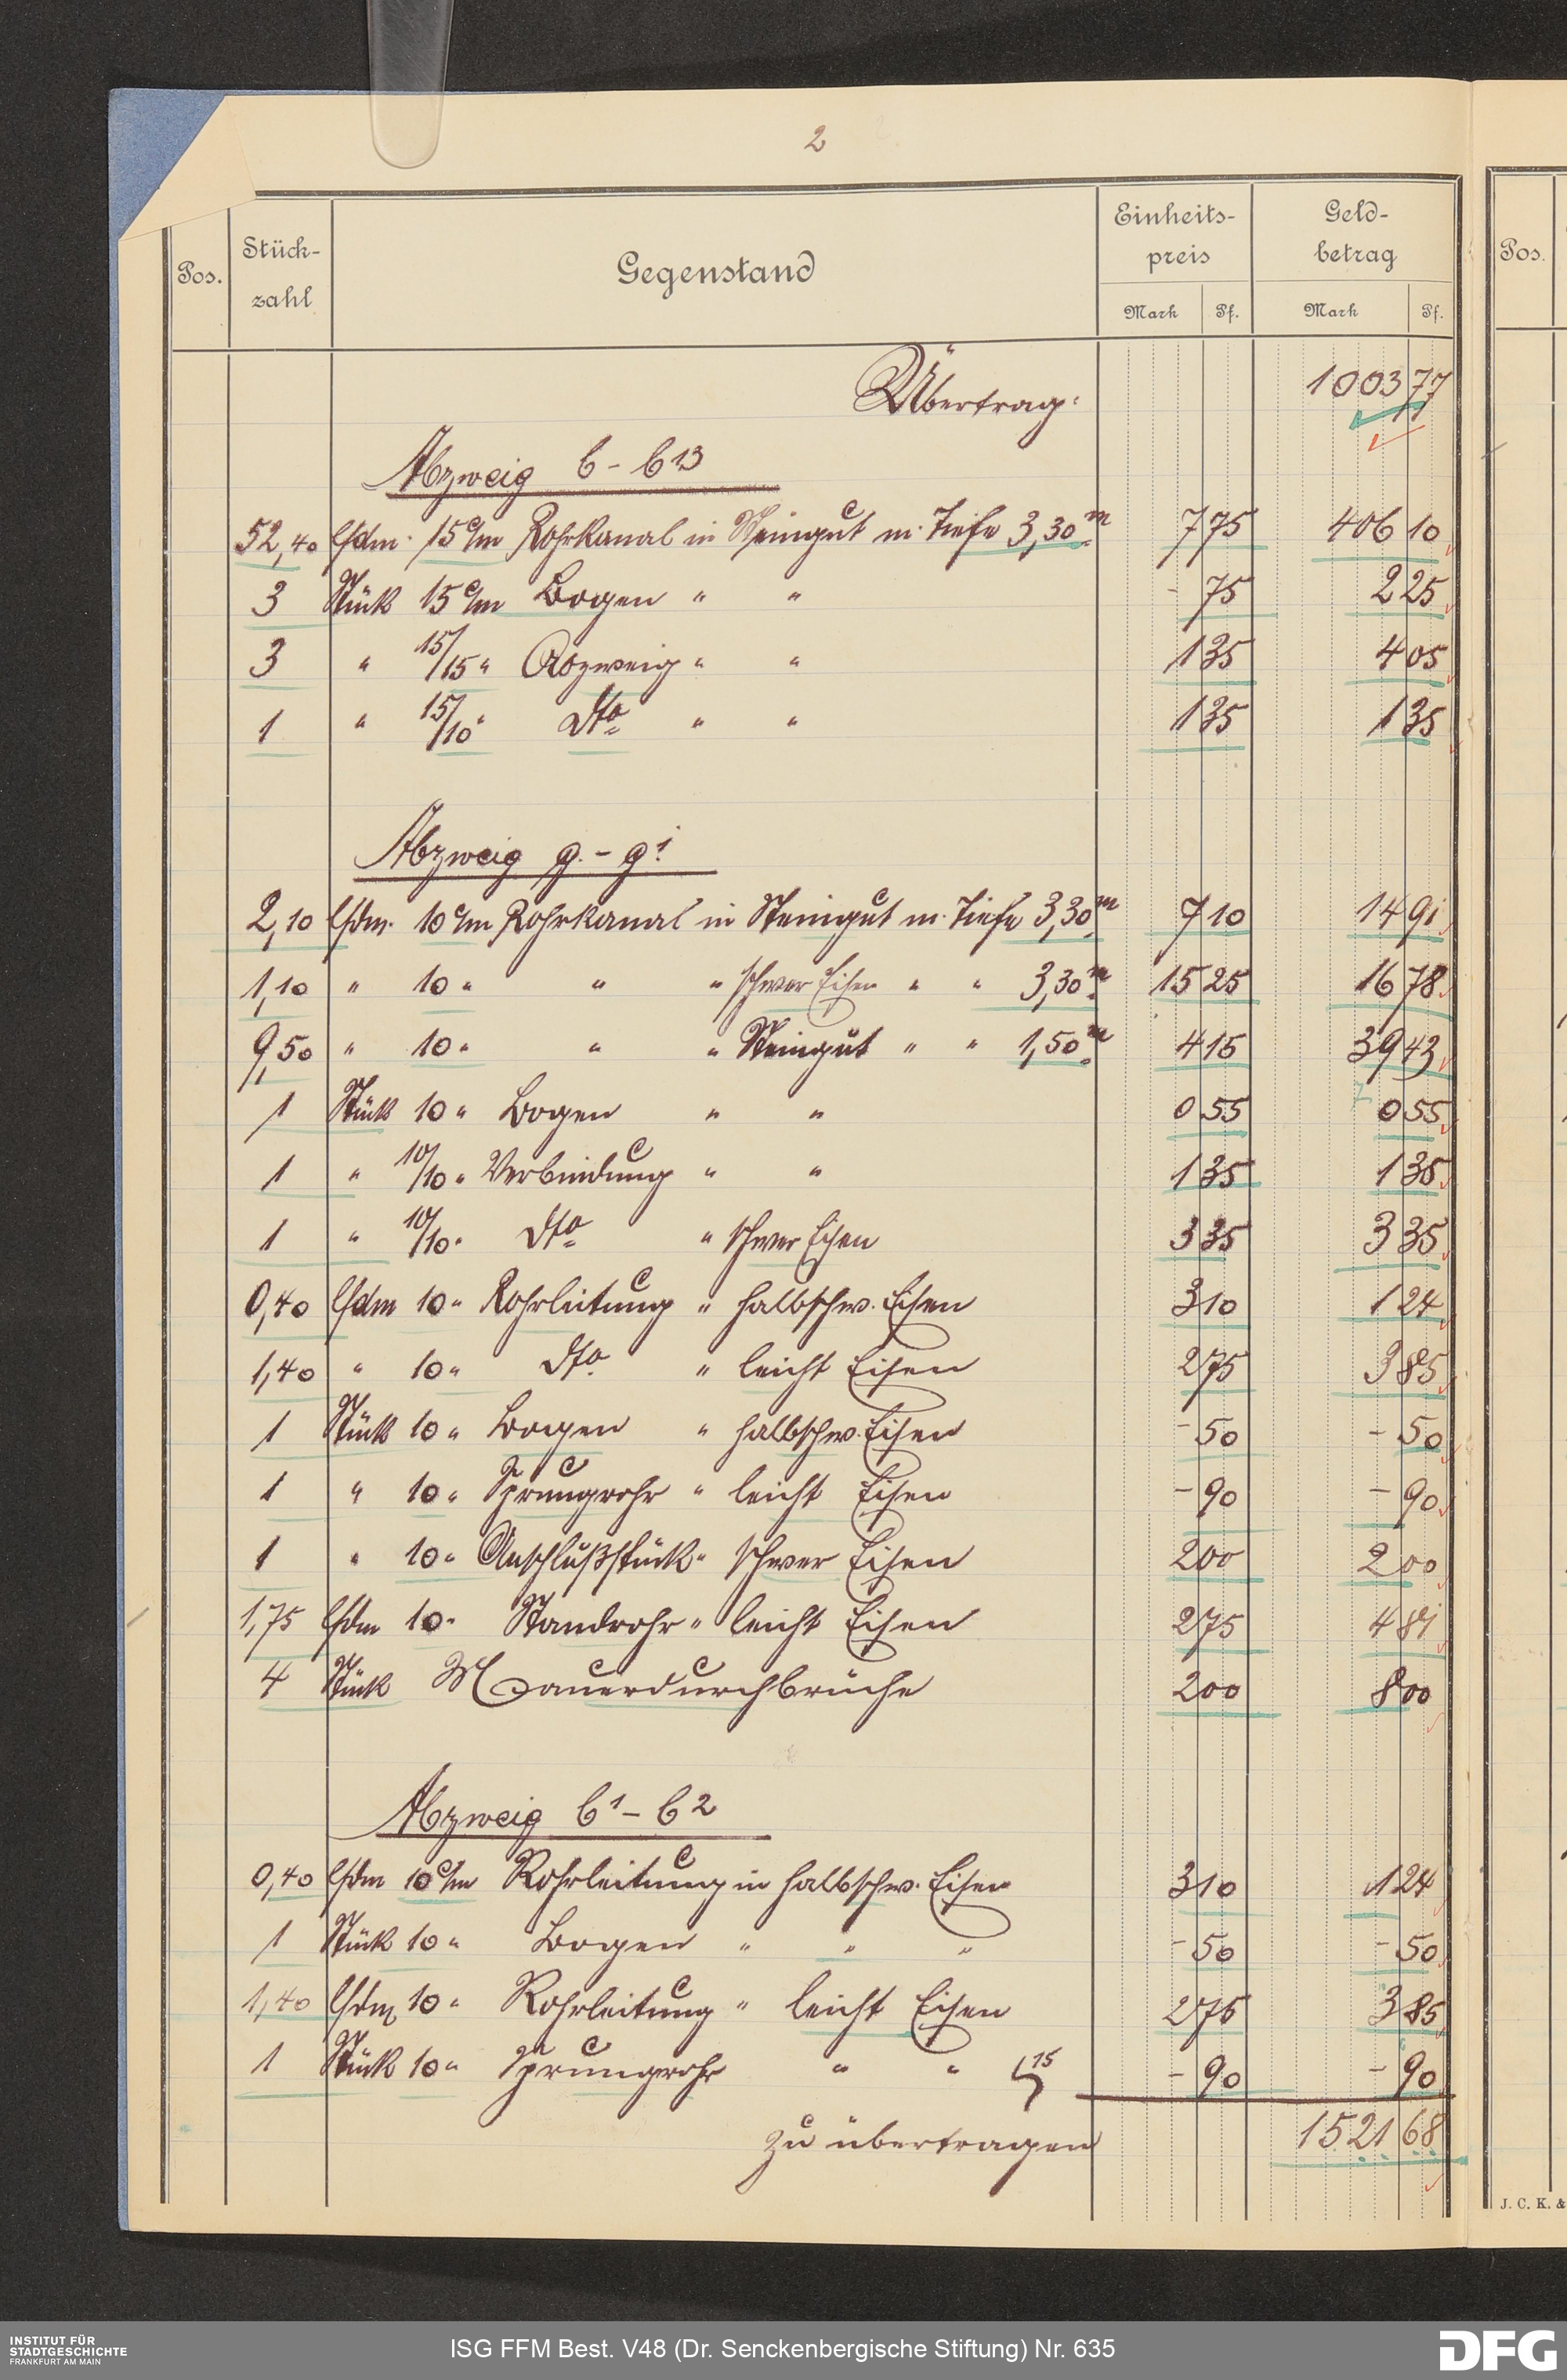 2
Pos. Stück-zahl Gegenstand Einheits-preis Mark Pf. Geld-betrag Mark Pf. Pos.
Übertrag: 1003 77
Abzweig b - b 13
52,40 lfdm. 15 c/m Rohrkanal in Steingut m. Tiefe 3,30 m 7 75 406 10
3 Stück 15 c/m Bogen " " - 75 2 25
3 " 15/15 " Abzweig " " 1 35 4 05
1 " 15/10 " dto " " 1 35 1 35
Abzweig g. - g1.
2,10 lfdm. 10 c/m Rohrkanal in Steingut m. Tiefe 3,30 m 7 10 14 91
1,10 " 10 " " " schwer Eisen " " 3,30 m 15 25 16 78
9,50 " 10 " " " Steingut " " 1,50 m 4 15 39 43
1 Stück 10 " Bogen " " 0 55 0 55
1 " 10/10 " Verbindung " " 1 35 1 35
1 " 10/10 " dto " schwer Eisen 3 35 3 35
0,40 lfdm 10 " Rohrleitung " halbschw. Eisen 3 10 1 24
1,40 " 10 " dto " leicht Eisen 2 75 3 85
1 Stück 10 " Bogen " halbschw. Eisen - 50 - 50
1 " 10 " Sprungrohr " leicht Eisen - 90 - 90
1 " 10 " Anschlußstück " schwer Eisen 2 00 2 00
1,75 lfdm 10 " Standrohr " leicht Eisen 2 75 4 81
4 Stück Mauerdurchbrüche 2 00 8 00
Abzweig b 1 - b 2
0,40 lfdm 10 c/m Rohrleitung in halbschw. Eisen 3 10 1 24
1 Stück 10 " Bogen " " " - 50 - 50
1,40 lfdm 10 " Rohrleitung " leicht Eisen 2 75 3 85
1 Stück 10 " Sprungrohr " " - 90 - 90
zu übertragen 1521 68
J. C. K. &
INSTITUT FÜR
STADTGESCHICHTE
FRANKFURT AM MAIN
ISG FFM Best. V48 (Dr. Senckenbergische Stiftung) Nr. 635
DFG